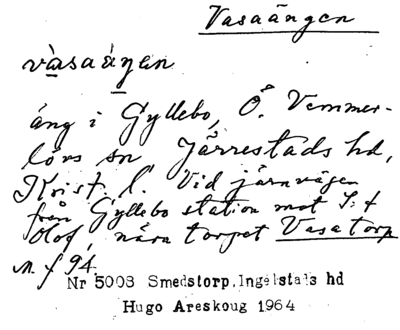 Vasaängen
vàsaáŋan
äng i Gyllebo, Ö. Vemmer-
lövs sn Järrestads hd,
Krist. l. Vid järnvägen
från Gyllebo station mot S:t
Olof, nära torpet Vasatorp
m. f 94.
Nr 5008 Smedstorp, Ingelstads hd
Hugo Areskoug 1964